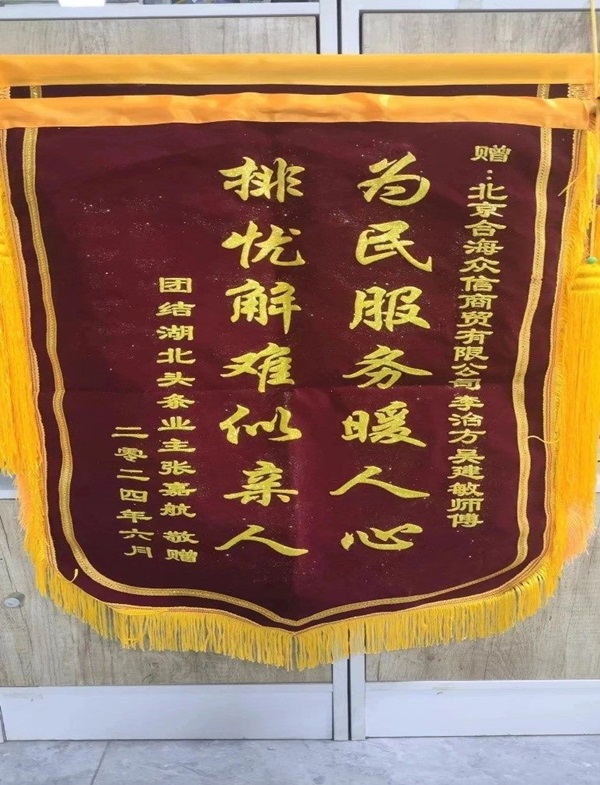 赠：北京合海众信商贸有限公司李治方吴建敏师傅
为民服务暖人心
排忧解难似亲人
团结湖北头条业主张嘉航 敬赠
二零二四年六月